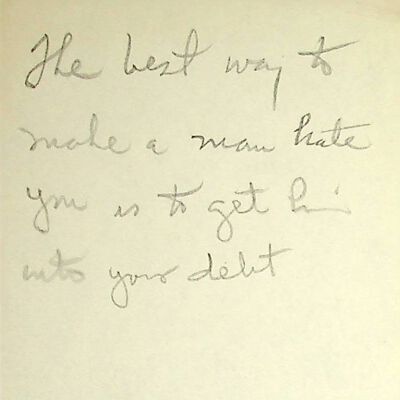 The best way to
make a man hate
you is to get him
into your debt